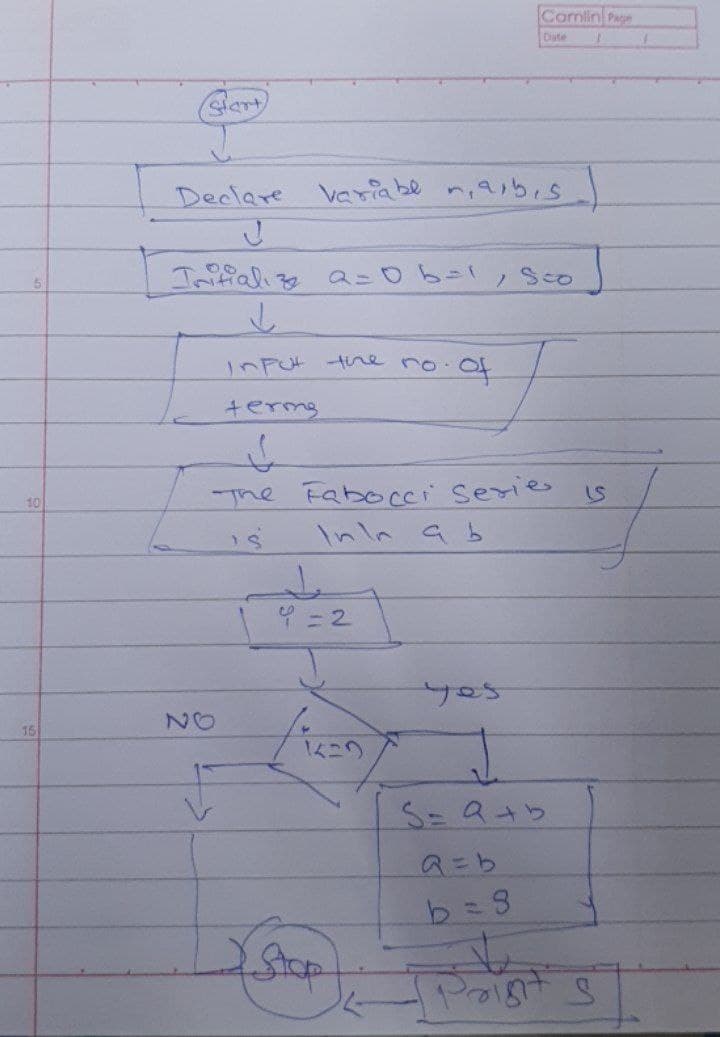 Camlin Page
Date / /
Start
Declare Variabe n, a, b, s
Initialize a=0 b=1, S=0
5
Input the no. of
terms
The Fabocci Series is
10
is \n\n a b
i=2
Yes
NO
15
i<=n
S= a+b
a=b
b=s
Stop
Print S